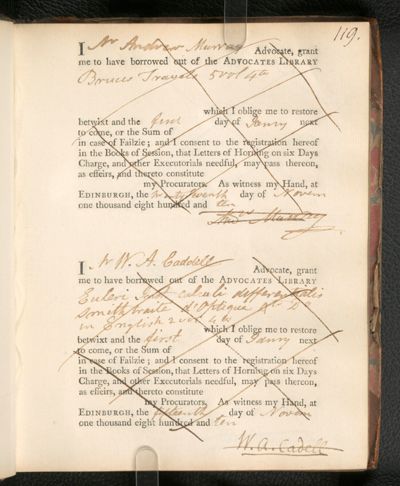 119.
I Mr Andrew Murray Advocate, grant
me to have borrowed out of the ADVOCATES LIBRARY
Bruces Travels 5 vol 4to
which I oblige me to restore
betwixt and the first day of Janry next
to come, or the Sum of
in case of Failzie; and I consent to the registration hereof
in the Books of Session, that Letters of Horning on six Days
Charge, and other Executorials needful, may pass thereon,
as effeirs, and thereto constitute
my Procurators. As witness my Hand, at
EDINBURGH, the day of Novem
one thousand eight hundred and ten
Andw Murray
I Mr W. A. Caddell Advocate, grant
me to have borrowed out of the ADVOCATES LIBRARY
Euleri calculi differentialis
Smith traite d'Optique 4to Do
in English 2 vol 4to
which I oblige me to restore
betwixt and the first day of Janry next
to come, or the Sum of
in case of Failzie; and I consent to the registration hereof
in the Books of Session, that Letters of Horning on six Days
Charge, and other Executorials needful, may pass thereon,
as effeirs, and thereto constitute
my Procurators. As witness my Hand, at
EDINBURGH, the fifteenth day of Novem
one thousand eight hundred and ten
W. A. Cadell